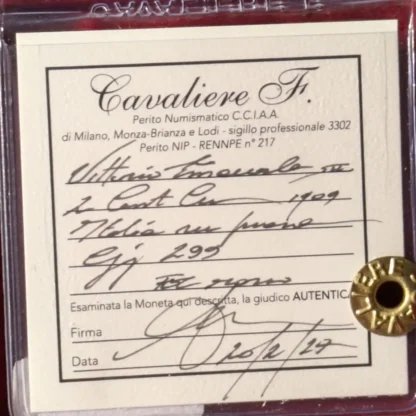 Cavaliere F.
Perito Numismatico C.C.I.A.A.
di Milano, Monza-Brianza e Lodi - sigillo professionale 3302
Perito NIP - RENNPE n° 217
Vittorio Emanuele III
2 Cent Cu 1909
Italia su prora
Gig 299
Esaminata la Moneta qui descritta, la giudico AUTENTICA
Firma
Data 20/2/27